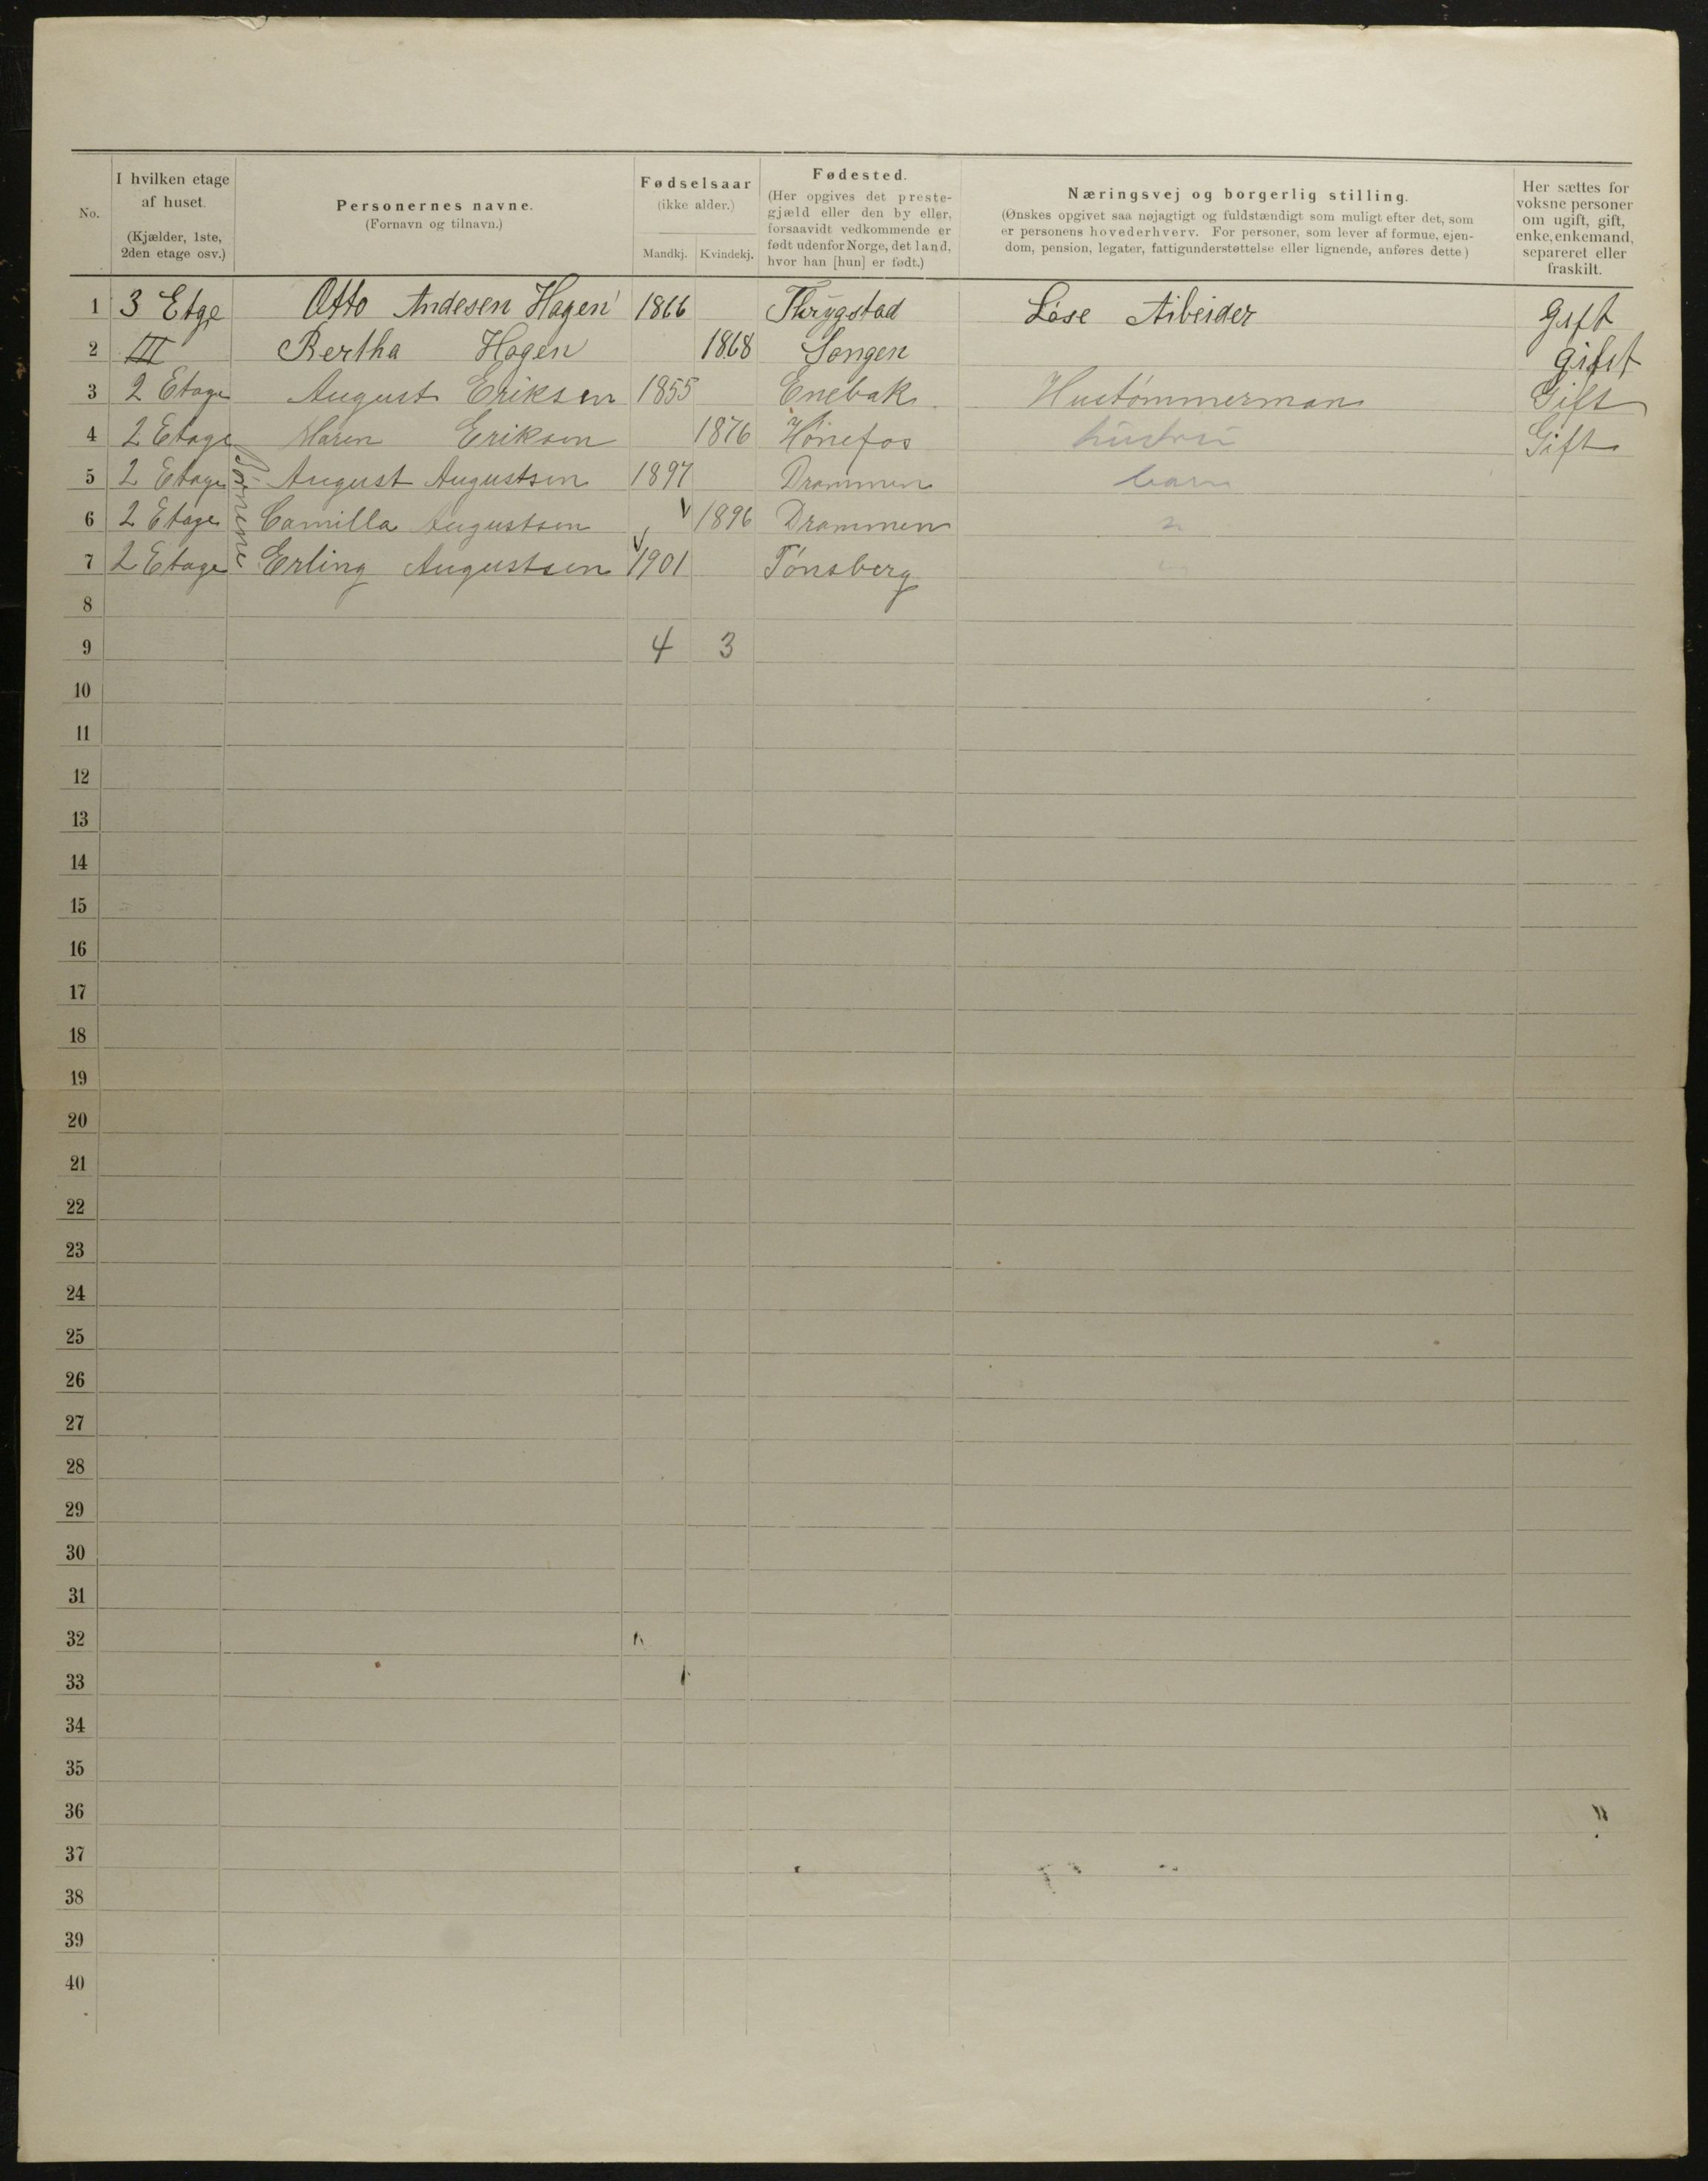 No.
I hvilken etage af huset. (Kjælder, 1ste, 2den etage osv.)
Personernes navne. (Fornavn og tilnavn.)
Fødselsaar (ikke alder.)
Mandkj. Kvindekj.
Fødested. (Her opgives det prestegjæld eller den by eller, forsaavidt vedkommende er født udenfor Norge, det land, hvor han [hun] er født.)
Næringsvej og borgerlig stilling. (Ønskes opgivet saa nøjagtigt og fuldstændigt som muligt efter det, som er personens hovederhverv. For personer, som lever af formue, ejendom, pension, legater, fattigunderstøttelse eller lignende, anføres dette)
Her sættes for voksne personer om ugift, gift, enke, enkemand, separeret eller fraskilt.
1 3 Etge Otto Andesen Hagen 1866 Thrygstad Løse Arbeider gift
2 III Bertha Hagen 1868 Songen gift
3 2 Etage August Eriksen 1855 Enebak Hustømmerman Gift
4 2 Etage Maren Eriksen 1876 Hønefos hustru Gift
Börnene
5 2 Etage August Augustsen 1897 Drammen barn
6 2 Etage Camilla Augustsen 1896 Drammen "
7 2 Etage Erling Augustsen 1901 Tønsberg "
8
9 4 3
10
11
12
13
14
15
16
17
18
19
20
21
22
23
24
25
26
27
28
29
30
31
32
33
34
35
36
37
38
39
40